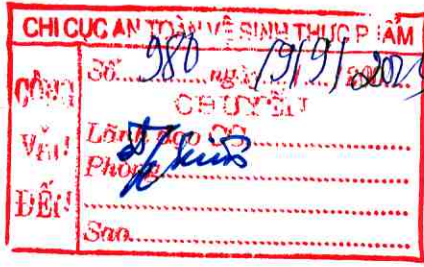 CHI CỤC AN TOÀN VỆ SINH THỰC PHẨM
CÔNG VĂN ĐẾN
Số 980 ngày 19/9/2023
CHUYỂN
Lãnh đạo CC
Phòng
Sao